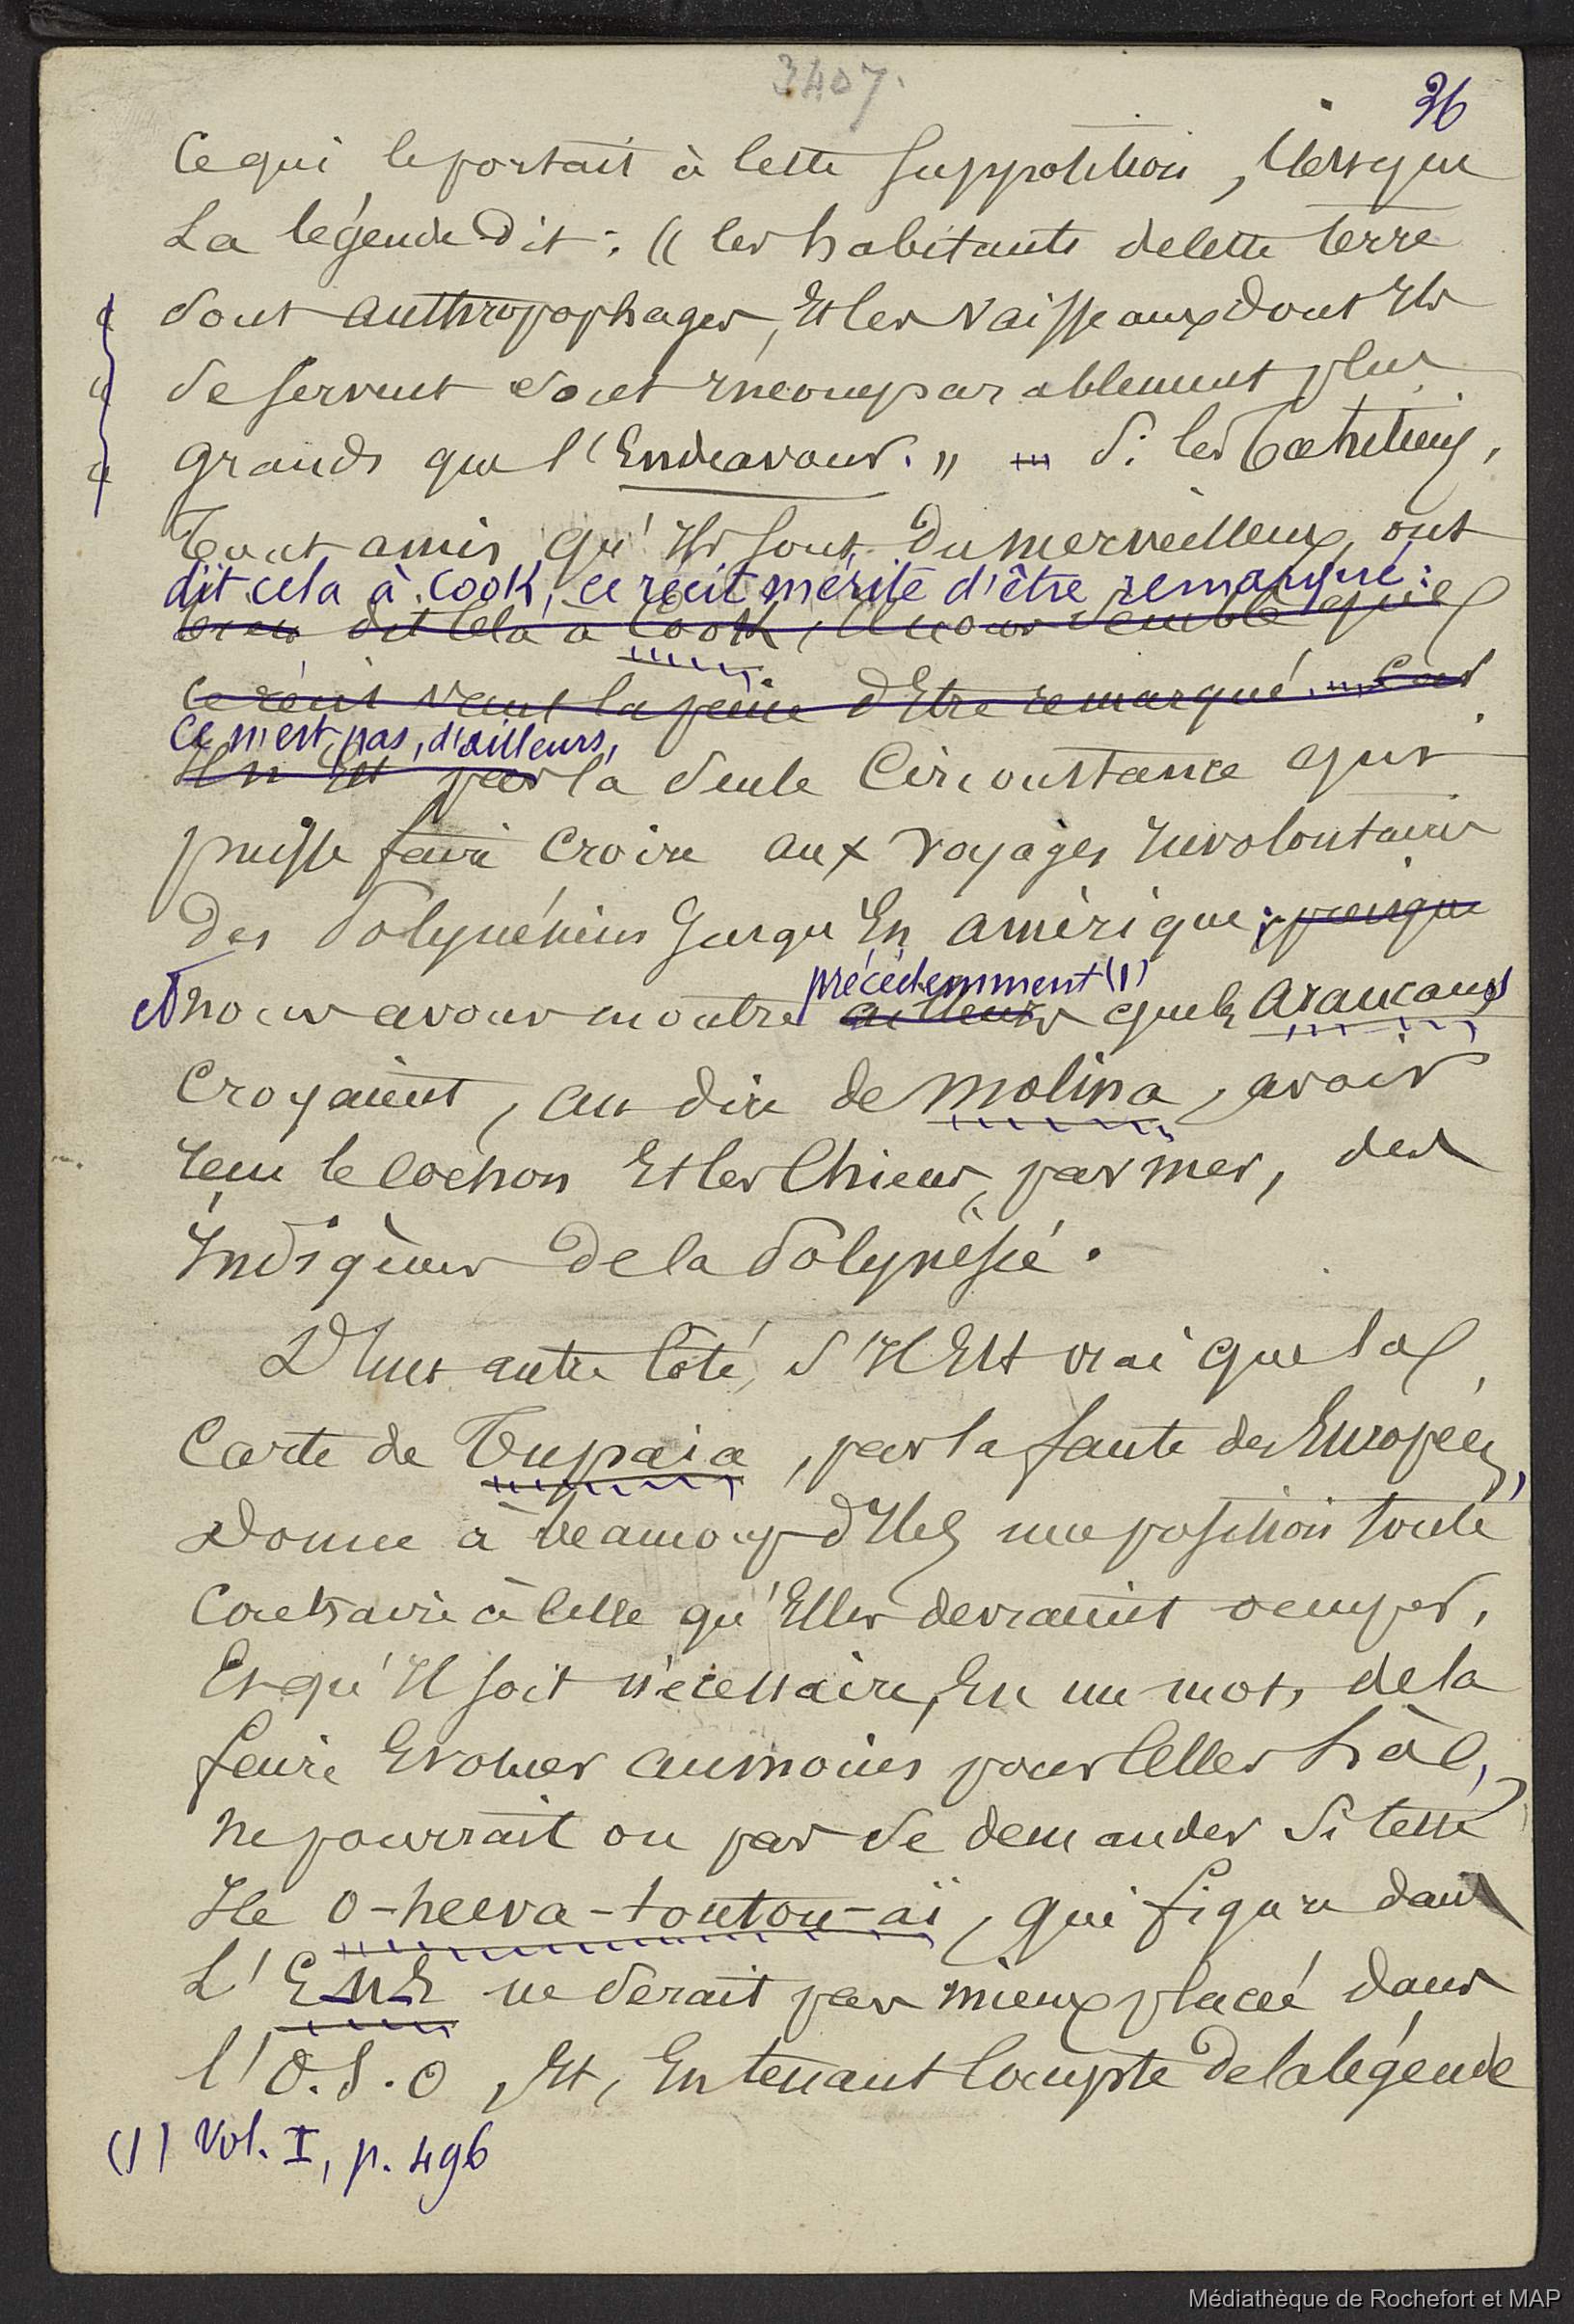 3407.
36
Ce qui le portait à cette supposition, c'est que
La légende dit : « les habitants de cette terre
sont anthropophages, et les vaisseaux dont ils
se servent sont incomparablement plus
grands que l'Endeavour. » — Si les Tahitiens,
tout amis qu'ils sont du merveilleux, ont
dit cela à Cook, ce récit mérite d'être remarqué :
dit cela à Cook, il nous semble que
ce récit vaut la peine d'être remarqué. — Car
Ce n'est pas, d'ailleurs,
Il n'est pas la seule circonstance qui
puisse faire croire aux voyages involontaires
des Polynésiens jusqu'en Amérique ; puisque
précédemment (1)
et nous avons montré ailleurs que les Araucans
croyaient, au dire de Molina, avoir
reçu le cochon et les chiens, par mer, des
Indigènes de la Polynésie.
D'un autre côté, s'il est vrai que la
Carte de Tupaia, par la faute des Européens,
donne à beaucoup d'îles une position toute
contraire à celle qu'elles devraient occuper,
et qu'il soit nécessaire, en un mot, de la
faire évoluer au moins pour celles là,
ne pourrait on pas se demander si cette
Ile O-heeva-toutou-aï, qui figure dans
L'E.N.E. ne serait pas mieux placée dans
l'O.S.O, et, en tenant compte de la légende
(1) Vol. I, p. 496
Médiathèque de Rochefort et MAP